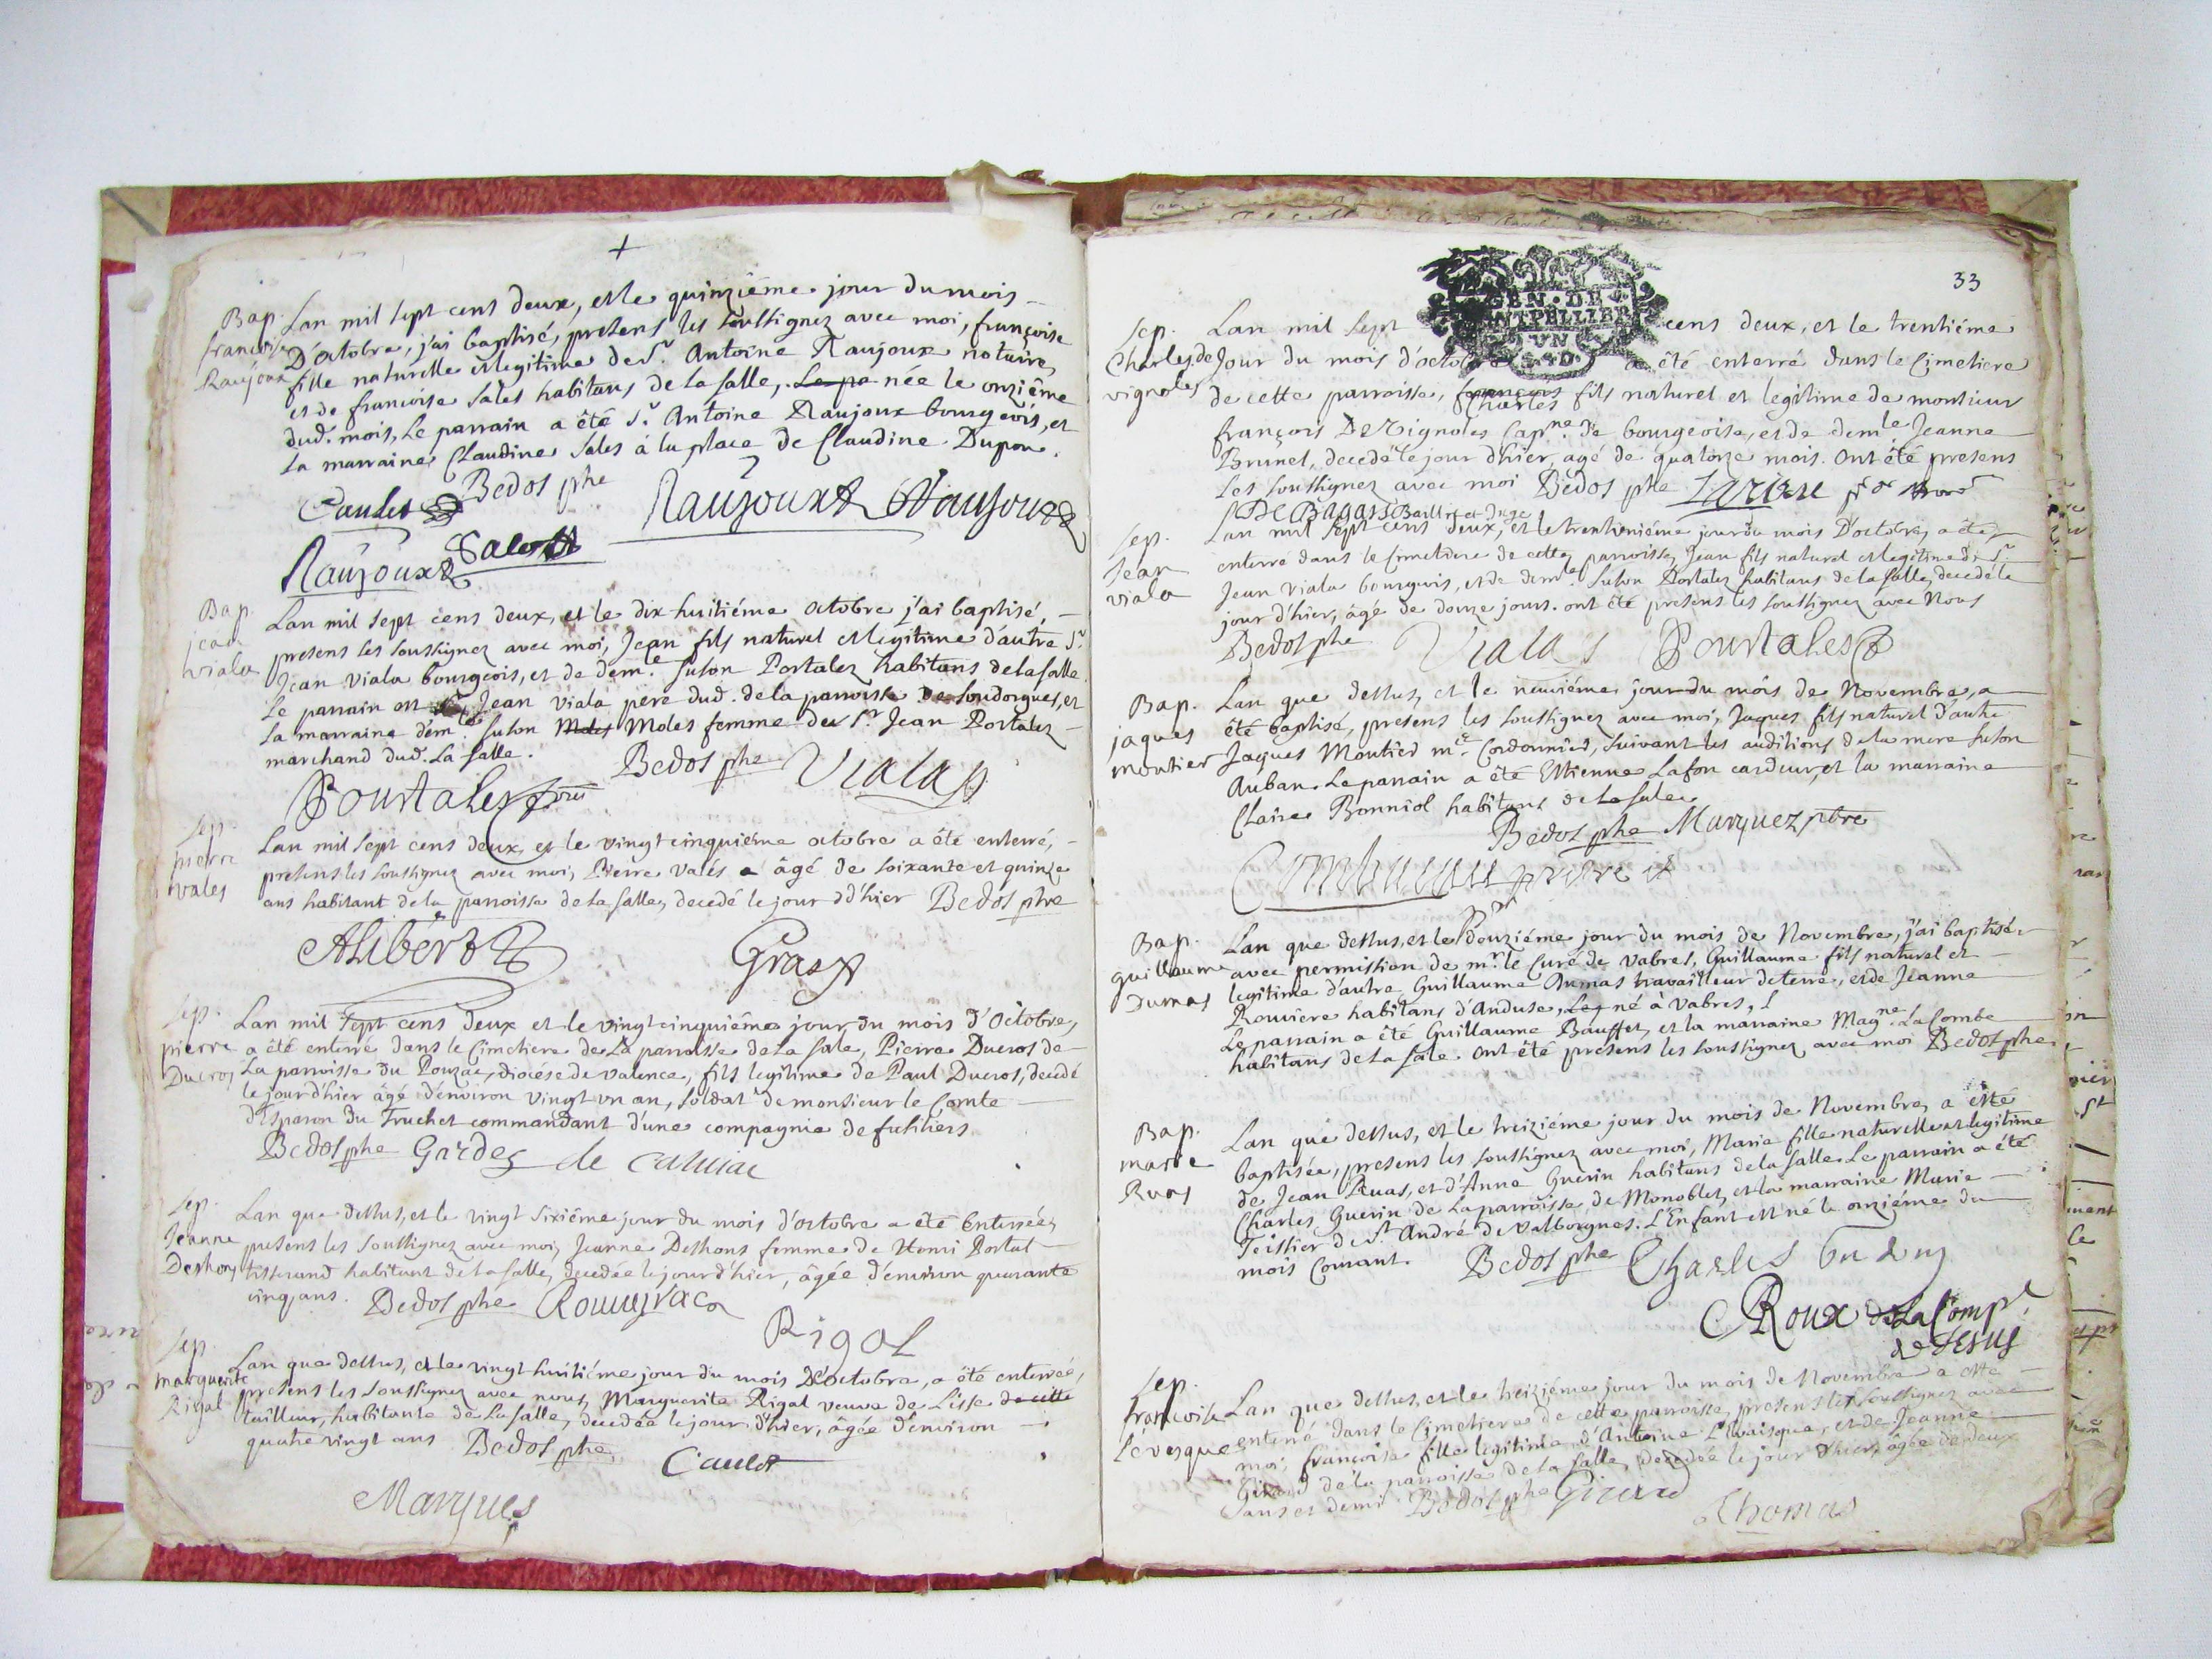 +
Bap. francoise Raujoux
Lan mil sept cens deux, et le quinziême jour du mois
D'octobre, j'ai baptisé, presens les soussignez avec moi, françoise
fille naturelle et legitime de Sr. Antoine Raujoux notaire,
et de francoise Sales habitans de la salle, Le pa née le onziême
dud. mois, Le parrain a été Sr. Antoine Raujoux bourgeois, et
La marraine Claudine Sales à la place de Claudine Dupon.
Caulet Bedos phe Raujoux Raujoux
Raujoux
Bap. jean viala
Lan mil sept cens deux, et le dix huitiéme octobre j'ai baptisé,
presens les soussignez avec moi, Jean fils naturel et legitime d'autre Sr.
Jean Viala bourgeois, et de demle. Suson Portalez habitans de la salle.
Le parrain est Jean Viala pere dud. de la parroisse de soudorgues, et
La marraine demle. Suson Moles Moles femme du Sr. Jean Portalez
marchand dud. La salle.
Bedos phe Vialas
Pourtales
Sep. pierre vales
Lan mil sept cens deux, et le vingt cinquiéme octobre a été enterré,
presens les soussignez avec moi, Pierre Valés a âgé de soixante et quinze
ans habitant de la parroisse de la salle, decedé le jour d'hier Bedos phre
Alibert Gras
Sep. pierre Ducros
Lan mil sept cens deux et le vingt cinquiéme jour du mois d'Octobre,
a été enterré dans le Cimetiere de La parroisse de La Sale, Pierre Ducros de
La parroisse du Pouzac, diocése de valence, fils legitime de Paul Ducros, decedé
le jour d'hier âgé d'environ vingt un an, soldat de monsieur le Comte
d'Esparon du Truchet commandant d'une compagnie de fusiliers
Bedos phe Gardes de calviac
Sep. Jeanne Deshons
Lan que dessus, et le vingt sixiéme jour du mois d'octobre a été Enterrée,
presens les soussignez avec moi, Jeanne Deshons femme de Henri Portal
tisserand habitant de la salle, decedée le jour d'hier, âgée d'environ quarante
cinq ans. Bedos phe
Rigal
Sep. marguerite Rigal
Lan que dessus, et le vingt huitiéme jour du mois D'octobre, a été enterrée,
presens les soussignez avec nous, Marguerite Rigal veuve de Lisse
tailleur, habitante de La salle, decedée le jour d'hier, âgée d'environ
quatre vingt ans Bedos phe
Caulet
Marques
33
GEN. DE
MONTPELLIER
UN
Sep. Charles de vignoles
Lan mil sept cens deux, et le trentiéme
Jour du mois d'octobre a été enterré dans le Cimetiere
de cette parroisse, françois Charles fils naturel et legitime de monsieur
françois De Vignoles Capne. de bourgeoisie, et de demle. Jeanne
Brunel, decedé le jour d'hier, agé de quatorze mois. Ont été presens
Les soussignez avec moi Bedos phe
De Bagars Baillif et Juge
Sep. Jean viala
Lan mil sept cens deux, et le trentuniéme jour du mois D'octobre, a été
enterré dans le Cimetiere de cette parroisse, Jean fils naturel et legitime de Sr.
Jean Viala bourgeois, et de demle. Suson Portalez habitans de la salle, decedé le
jour d'hier, âgé de douze jours. ont été presens les soussignez avec Nous
Bedos phe Vialas Pourtales
Bap. jaques moutier
Lan que dessus, et le neuviéme jour du mois de Novembre, a
été baptisé, presens les soussignez avec moi, Jaques fils naturel d'autre
Jaques Moutier me. Cordonnier, suivant les auditions de la mere Suson
Auban. Le parrain a été Estienne Lafon cardeur, et la marraine
Claire Bonniol habitans de La sale.
Bedos phe Marquez ptre
Bap. guillaume Dumas
Lan que dessus, et le douziéme jour du mois de Novembre, j'ai baptisé,
avec permission de mr. le Curé de Vabres, Guillaume fils naturel et
legitime d'autre Guillaume Dumas travailleur de terre, et de Jeanne
Rouviere habitans d'Anduse, Leq né à Vabres,
Le parrain a été Guillaume Bauffet, et la marraine Magne. La Combe
habitans de La sale. Ont été presens les soussignez avec moi Bedos phe
Bap. marie Ruas
Lan que dessus, et le treiziéme jour du mois de Novembre, a esté
baptisée, presens les soussignez avec moi, Marie fille naturelle et legitime
de Jean Ruas, et d'Anne Guerin habitans de la salle. Le parrain a été
Charles Guerin de La parroisse de Monoblet, et la marraine Marie
Teissier de St. André de Valborgnes. L'Enfant est né le onziéme du
mois Courant. Bedos phe Charles
Roux de la Compe.
de Jesus
Sep. francoise Lévesque
Lan que dessus, et le treiziéme jour du mois de Novembre a esté
enterré dans le Cimetiere de cette parroisse, presens les soussignez avec
moi, françoise fille legitime d'Antoine L'evaisque, et de Jeanne
Girard de la parroisse de La salle, decedée le jour d'hier, âgée de deux
ans et demi. Bedos phe Girard
Thomas